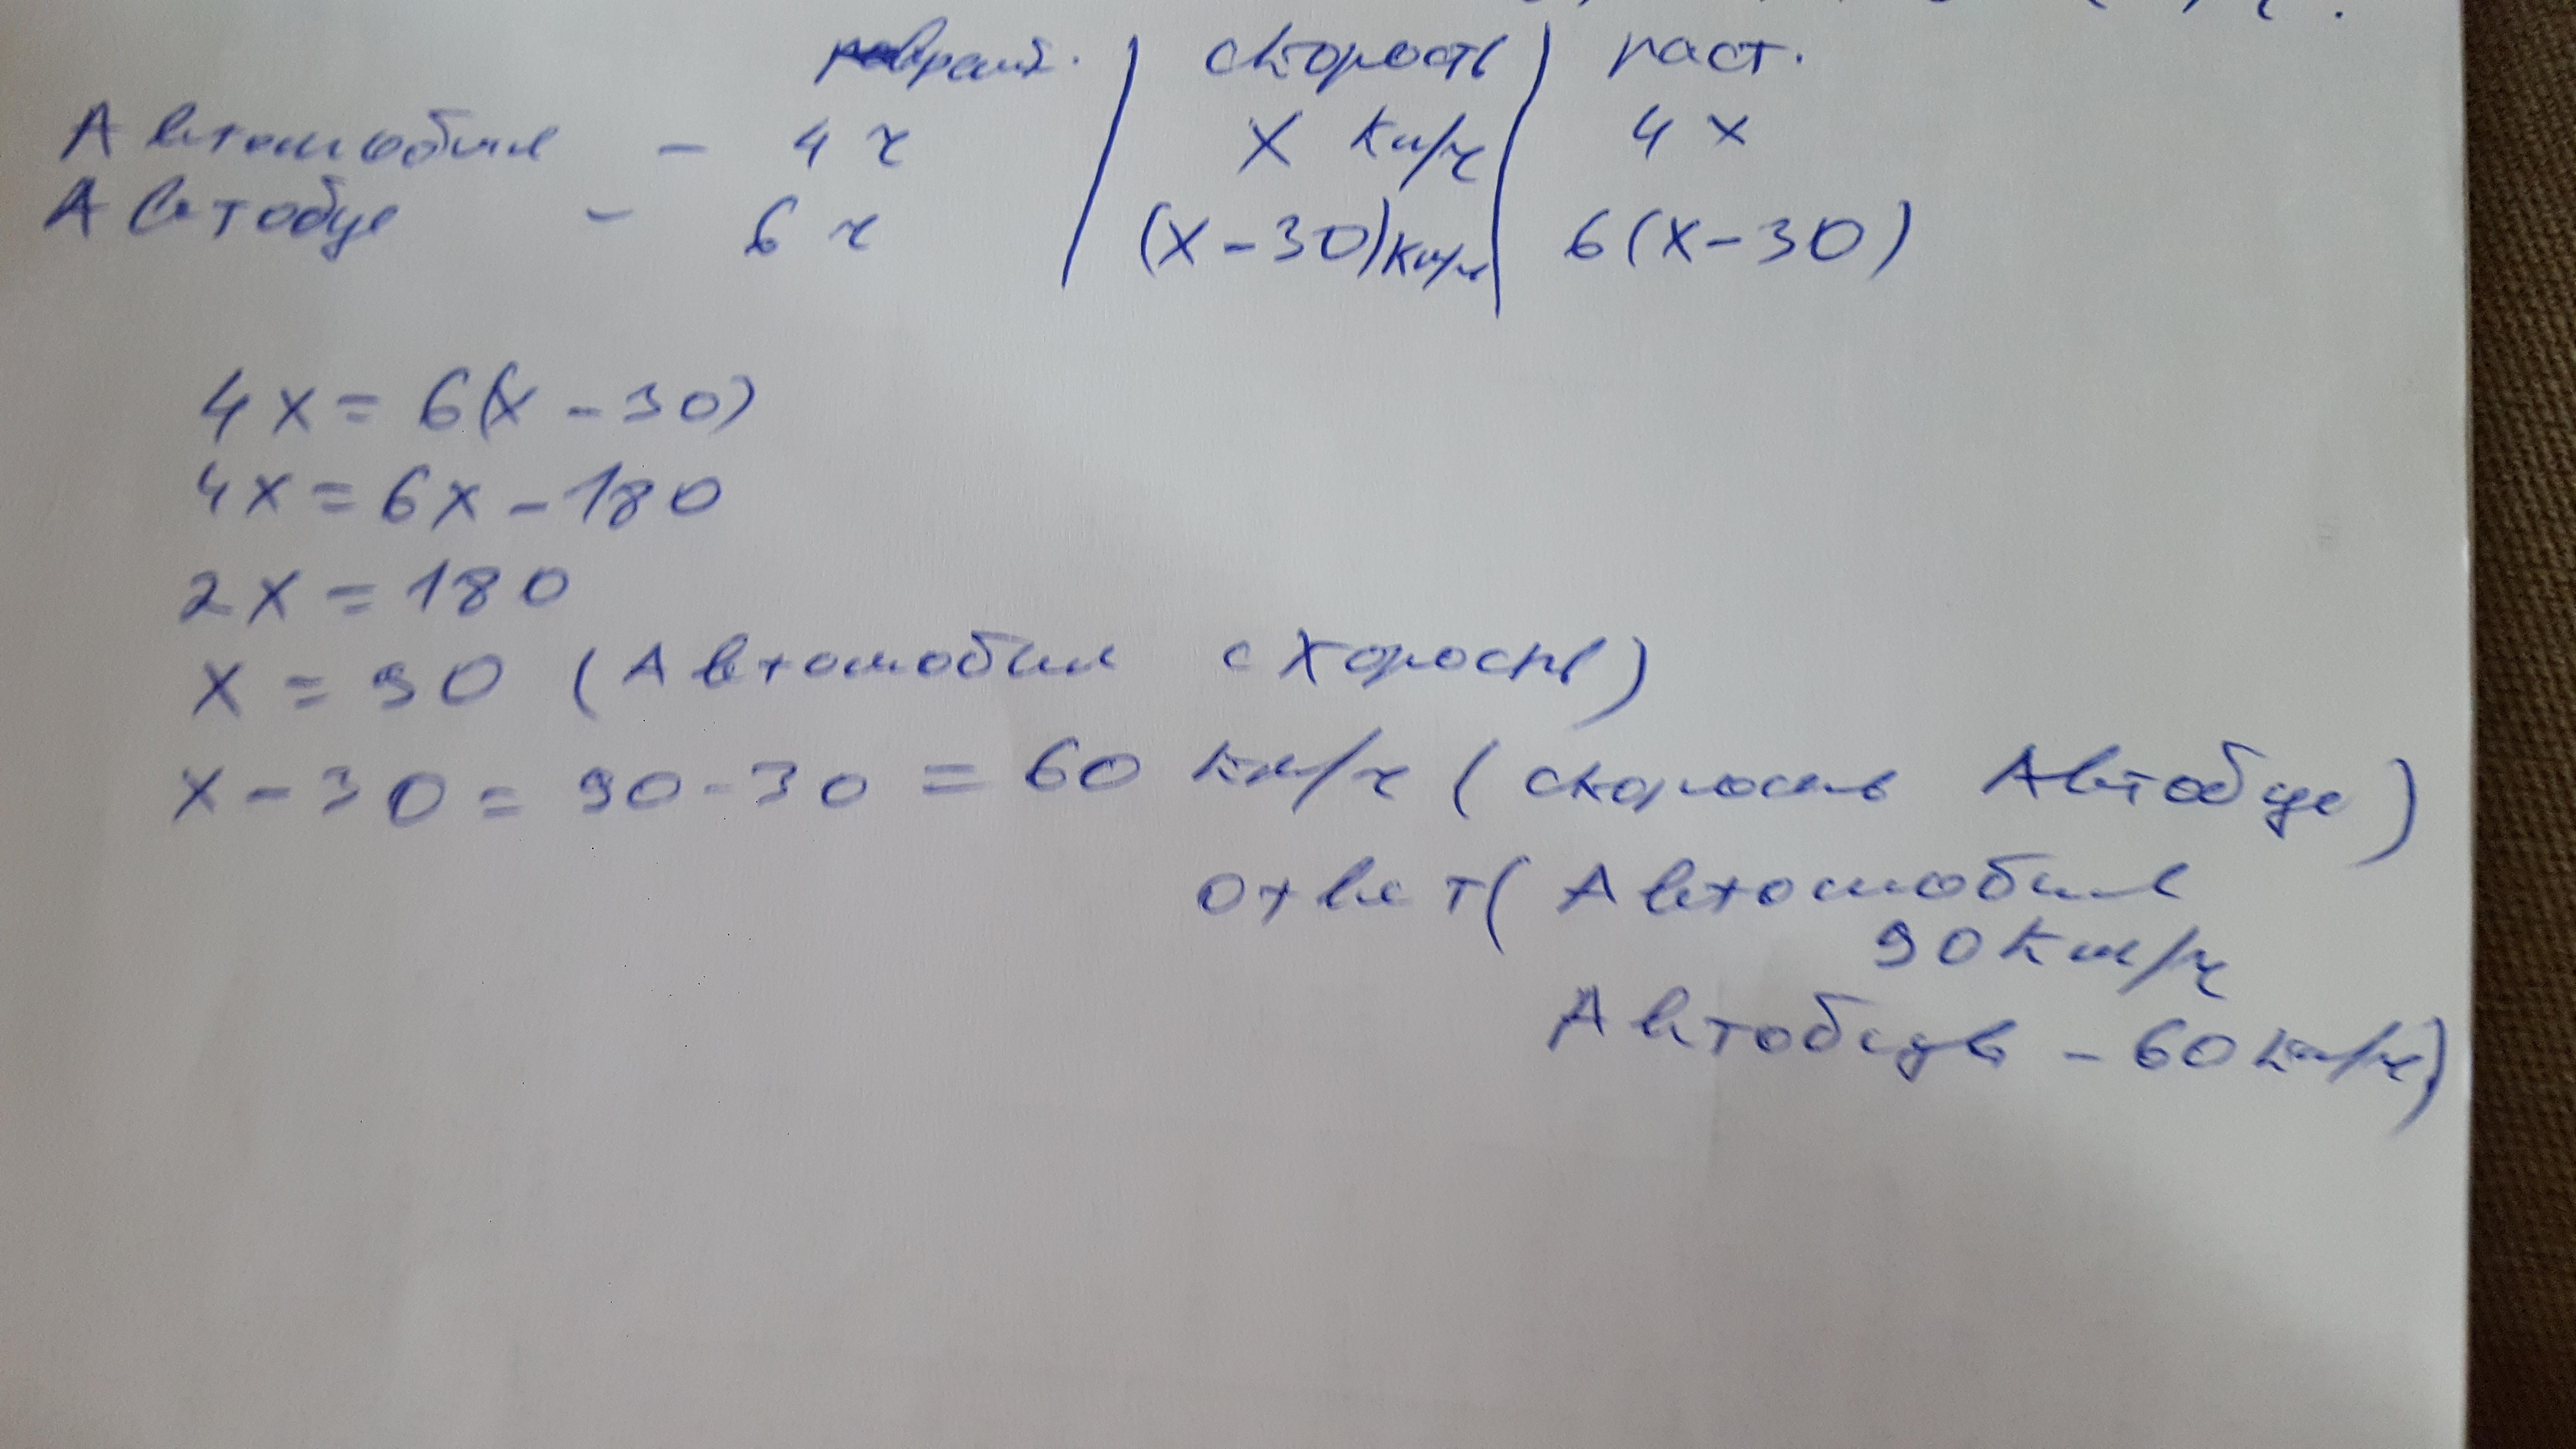 врем. | скорость | раст.
Автомобиль - 4 ч | х км/ч | 4 х
Автобус - 6 ч | (х-30)км/ч | 6(х-30)
4х = 6(х - 30)
4х = 6х - 180
2х = 180
х = 90 (Автомобил скорость)
х - 30 = 90 - 30 = 60 км/ч (скорость Автобус)
ответ( Автомобил
90 км/ч
Автобус - 60 км/ч)